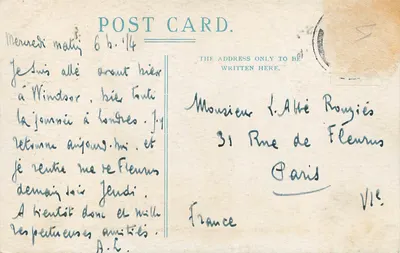 POST CARD.
THE ADDRESS ONLY TO BE
WRITTEN HERE.
Mercredi matin 6 h. 1/4
Je suis allé avant hier
à Windsor, hier toute
la journée à Londres. J'y
retourne aujourd'hui et
je rentre rue de Fleurus
demain soir Jeudi.
A bientôt donc et mille
respectueuses amitiés.
A. L.
Monsieur L'Abbé Rouziès
31 Rue de Fleurus
Paris
VIe
France